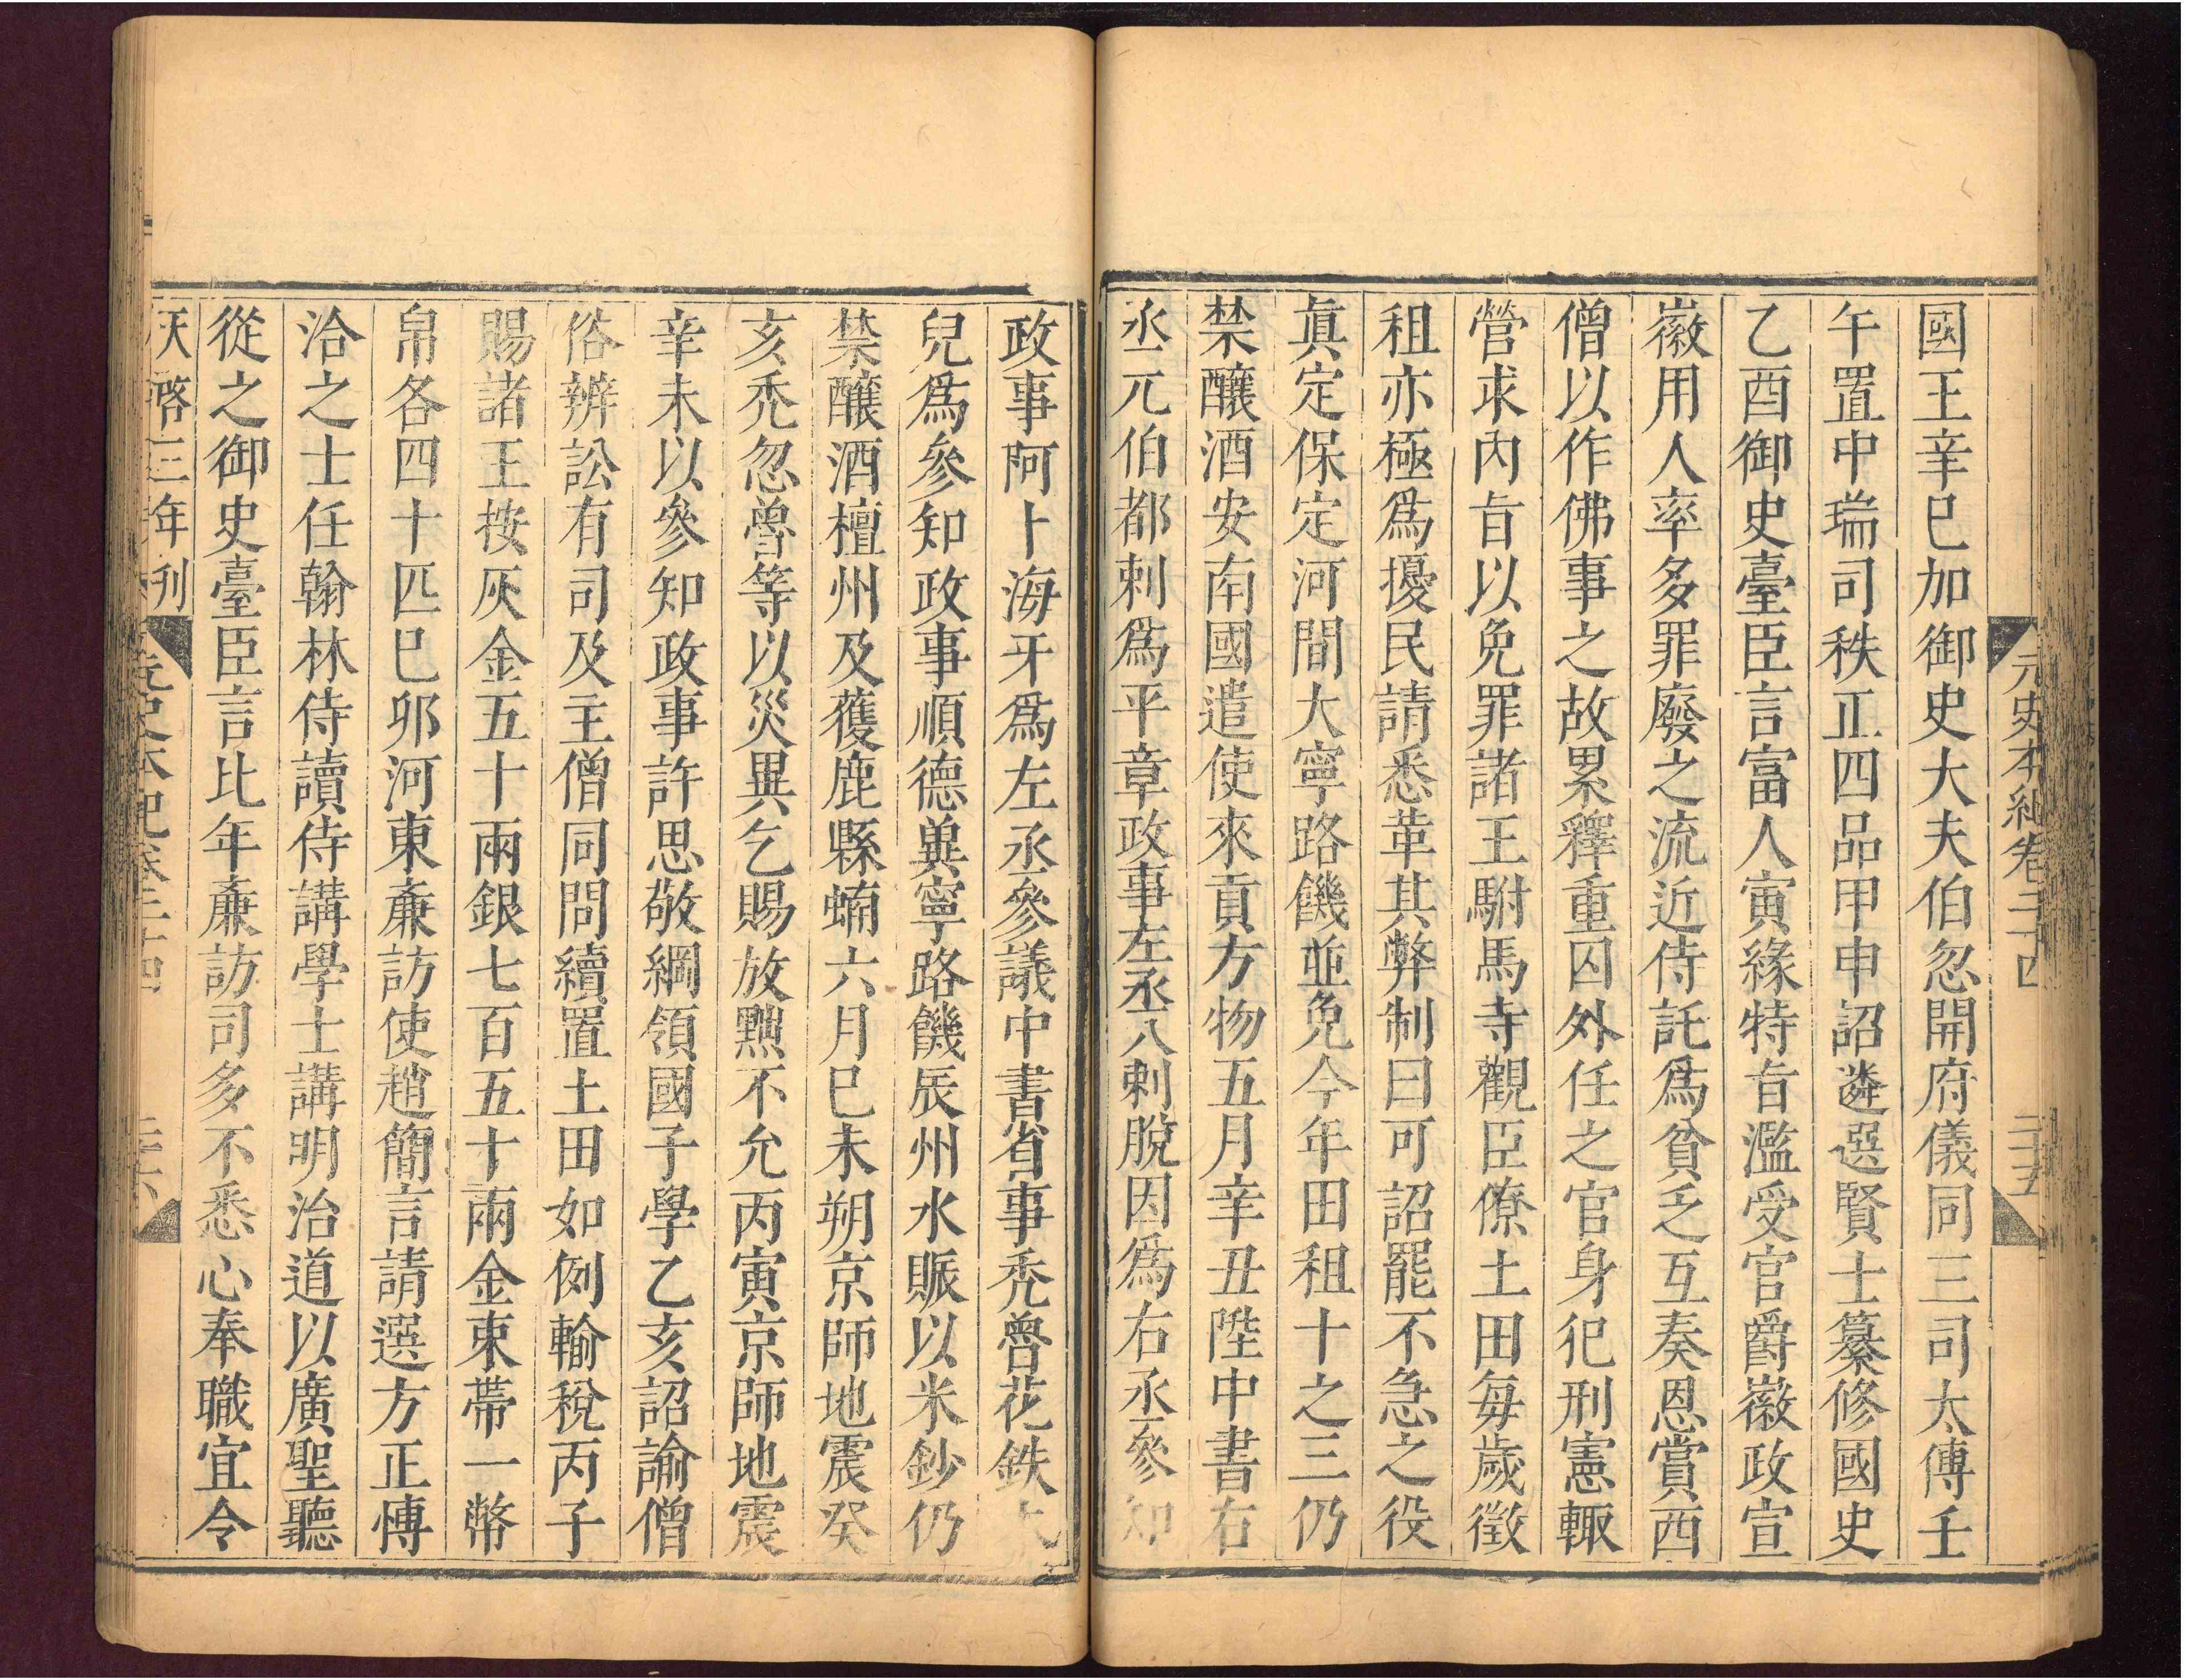 元史本紀卷二十四
二十五
國王辛巳加御史大夫伯忽開府儀同三司太傅壬
午置中瑞司秩正四品甲申詔遴選賢士纂修國史
乙酉御史臺臣言富人寅緣特旨濫受官爵徽政宣
徽用人率多罪廢之流近侍託爲貧乏互奏恩賞西
僧以作佛事之故累釋重囚外任之官身犯刑憲輙
營求内旨以免罪諸王駙馬寺觀臣僚土田每歲徵
租亦極爲擾民請悉革其弊制曰可詔罷不急之役
眞定保定河間大寧路饑並免今年田租十之三仍
禁釀酒安南國遣使來貢方物五月辛丑陞中書右
丞元伯都剌爲平章政事左丞八剌脫因爲右丞參知
政事阿卜海牙爲左丞參議中書省事禿魯花鉄木
兒爲參知政事順德兾寧路饑辰州水賑以米鈔仍
禁釀酒檀州及蒦鹿縣蝻六月巳未朔京師地震癸
亥禿忽魯等以災異乞賜放黜不允丙寅京師地震
辛未以參知政事許思敬綱領國子學乙亥詔諭僧
俗辨訟有司及主僧同問續置土田如例輸稅丙子
賜諸王按灰金五十兩銀七百五十兩金束帶一幣
帛各四十匹巳卯河東亷訪使趙簡言請選方正愽
洽之士任翰林侍讀侍講學士講明治道以廣聖聽
從之御史臺臣言比年亷訪司多不悉心奉職宜令
天啓三年刊
元史本紀卷二十四
二十六